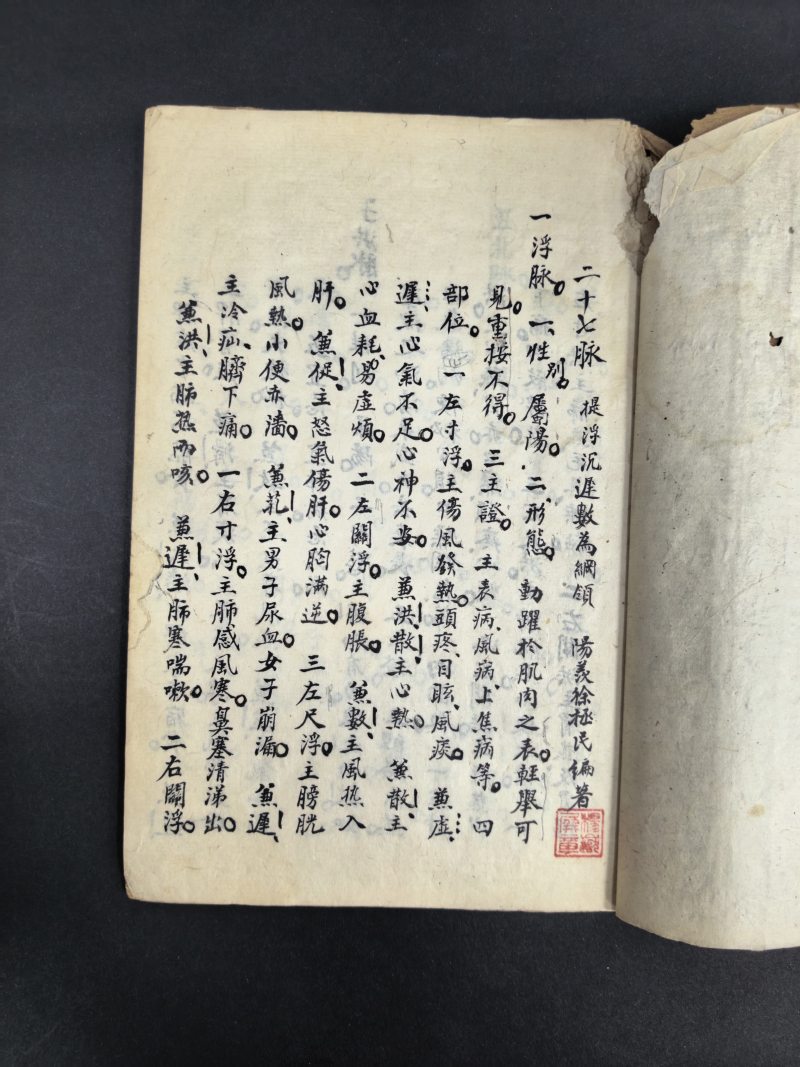 二十七脉　提浮沉遲數為綱領　陽羨徐極民編著
一浮脉。一、性别。屬陽．二、形態。動躍於肌肉之表。輕舉可
見。重按不得。三主證。主表病、風病、上焦病等。四
部位。一左寸浮。主傷風發熱。頭疼、目眩、風痰。兼虛、
遲主心氣不足。心神不安　兼洪、散、主心熱。兼散、主
心血耗、男虛煩。二左關浮。主腹脹。兼數、主風热入
肝。兼促、主怒氣傷肝。心胸滿逆。三左尺浮。主膀胱
風熱。小便赤濇。兼芤、主男子尿血。女子崩漏。兼遲、
主冷疝、臍下痛。一右寸浮。主肺感風寒。鼻塞清涕出。
兼洪、主肺热而咳。兼遲、主肺寒喘嗽。二右關浮。